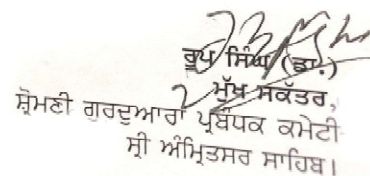 ਰੂਪ ਸਿੰਘ (ਡਾ.)
ਮੁੱਖ ਸਕੱਤਰ,
ਸ਼੍ਰੋਮਣੀ ਗੁਰਦੁਆਰਾ ਪ੍ਰਬੰਧਕ ਕਮੇਟੀ
ਸ੍ਰੀ ਅੰਮ੍ਰਿਤਸਰ ਸਾਹਿਬ।